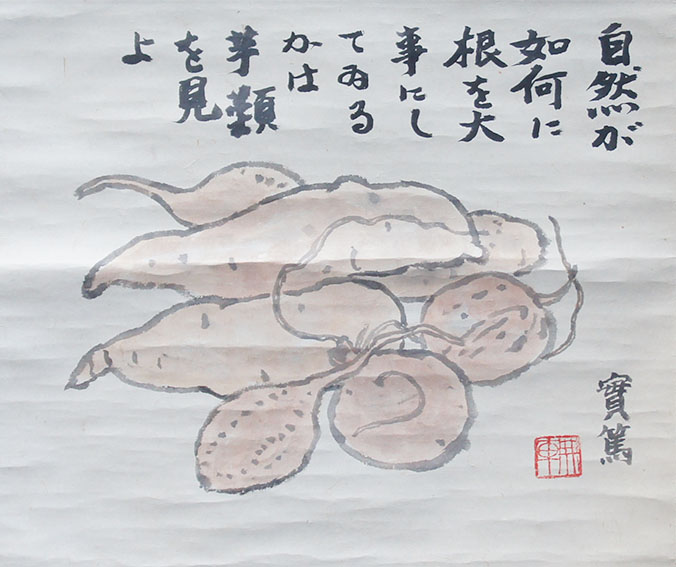 自然が
如何に
根を大
事にし
てゐる
かは
芋類
を見
よ
實篤
無車